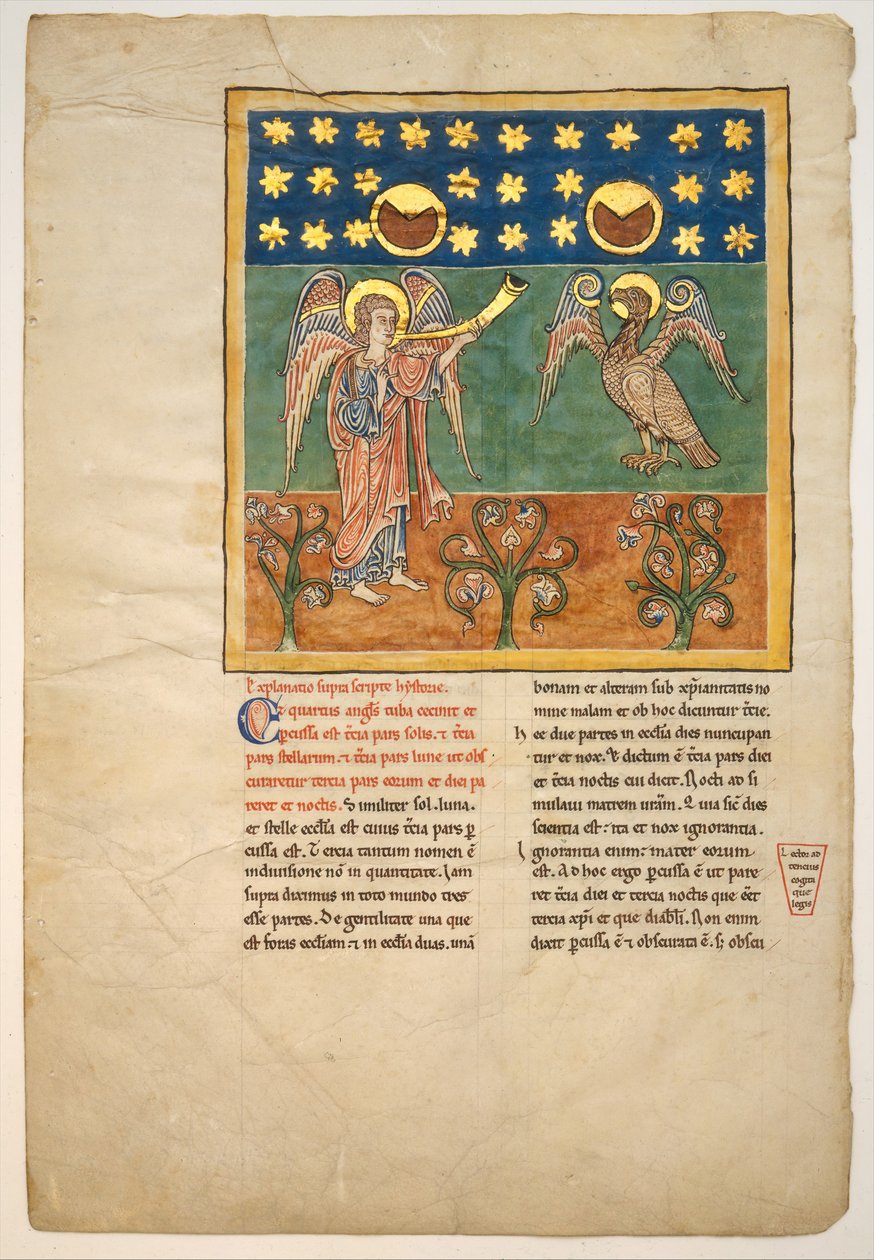 Explanatio supra scripte hystorie.
Et quartus angl̄s tuba cecinit et
ꝑcussa est t̄cia pars solis. ⁊ t̄cia
pars stellarum. ⁊ t̄cia pars lune ut obs
curaretur tercia pars eorum et diei pa
reret et noctis. Similiter sol. luna.
et stelle eccl̄ia est cuius t̄cia pars ꝑ
cussa est. Tercia tantum nomen ē
indiuisione nō in quantitate. Iam
supra diximus in toto mundo tres
esse partes. De gentilitate una que
est foras eccl̄iam. ⁊ in eccl̄ia duas. unā
bonam et alteram sub xp̄ianitatis no
mine malam et ob hoc dicuntur t̄cie.
Hee due partes in eccl̄ia dies nuncupan
tur et nox. Vt dictum ē t̄cia pars diei
et t̄cia noctis cui dicit. Nocti ad si
mulaui matrem urām. Quia sic̄ dies
scientia est. ita et nox ignorantia.
Ignorantia enim. mater eorum
est. Ad hoc ergo ꝑcussa ē ut pare
ret t̄cia diei et tercia noctis que eēt
tercia xp̄i et que diabl̄i. Non enim
dixit ꝑcussa ē ⁊ obscurata ē. s; obscu
Lector ad
tencius
cogita
que
legis